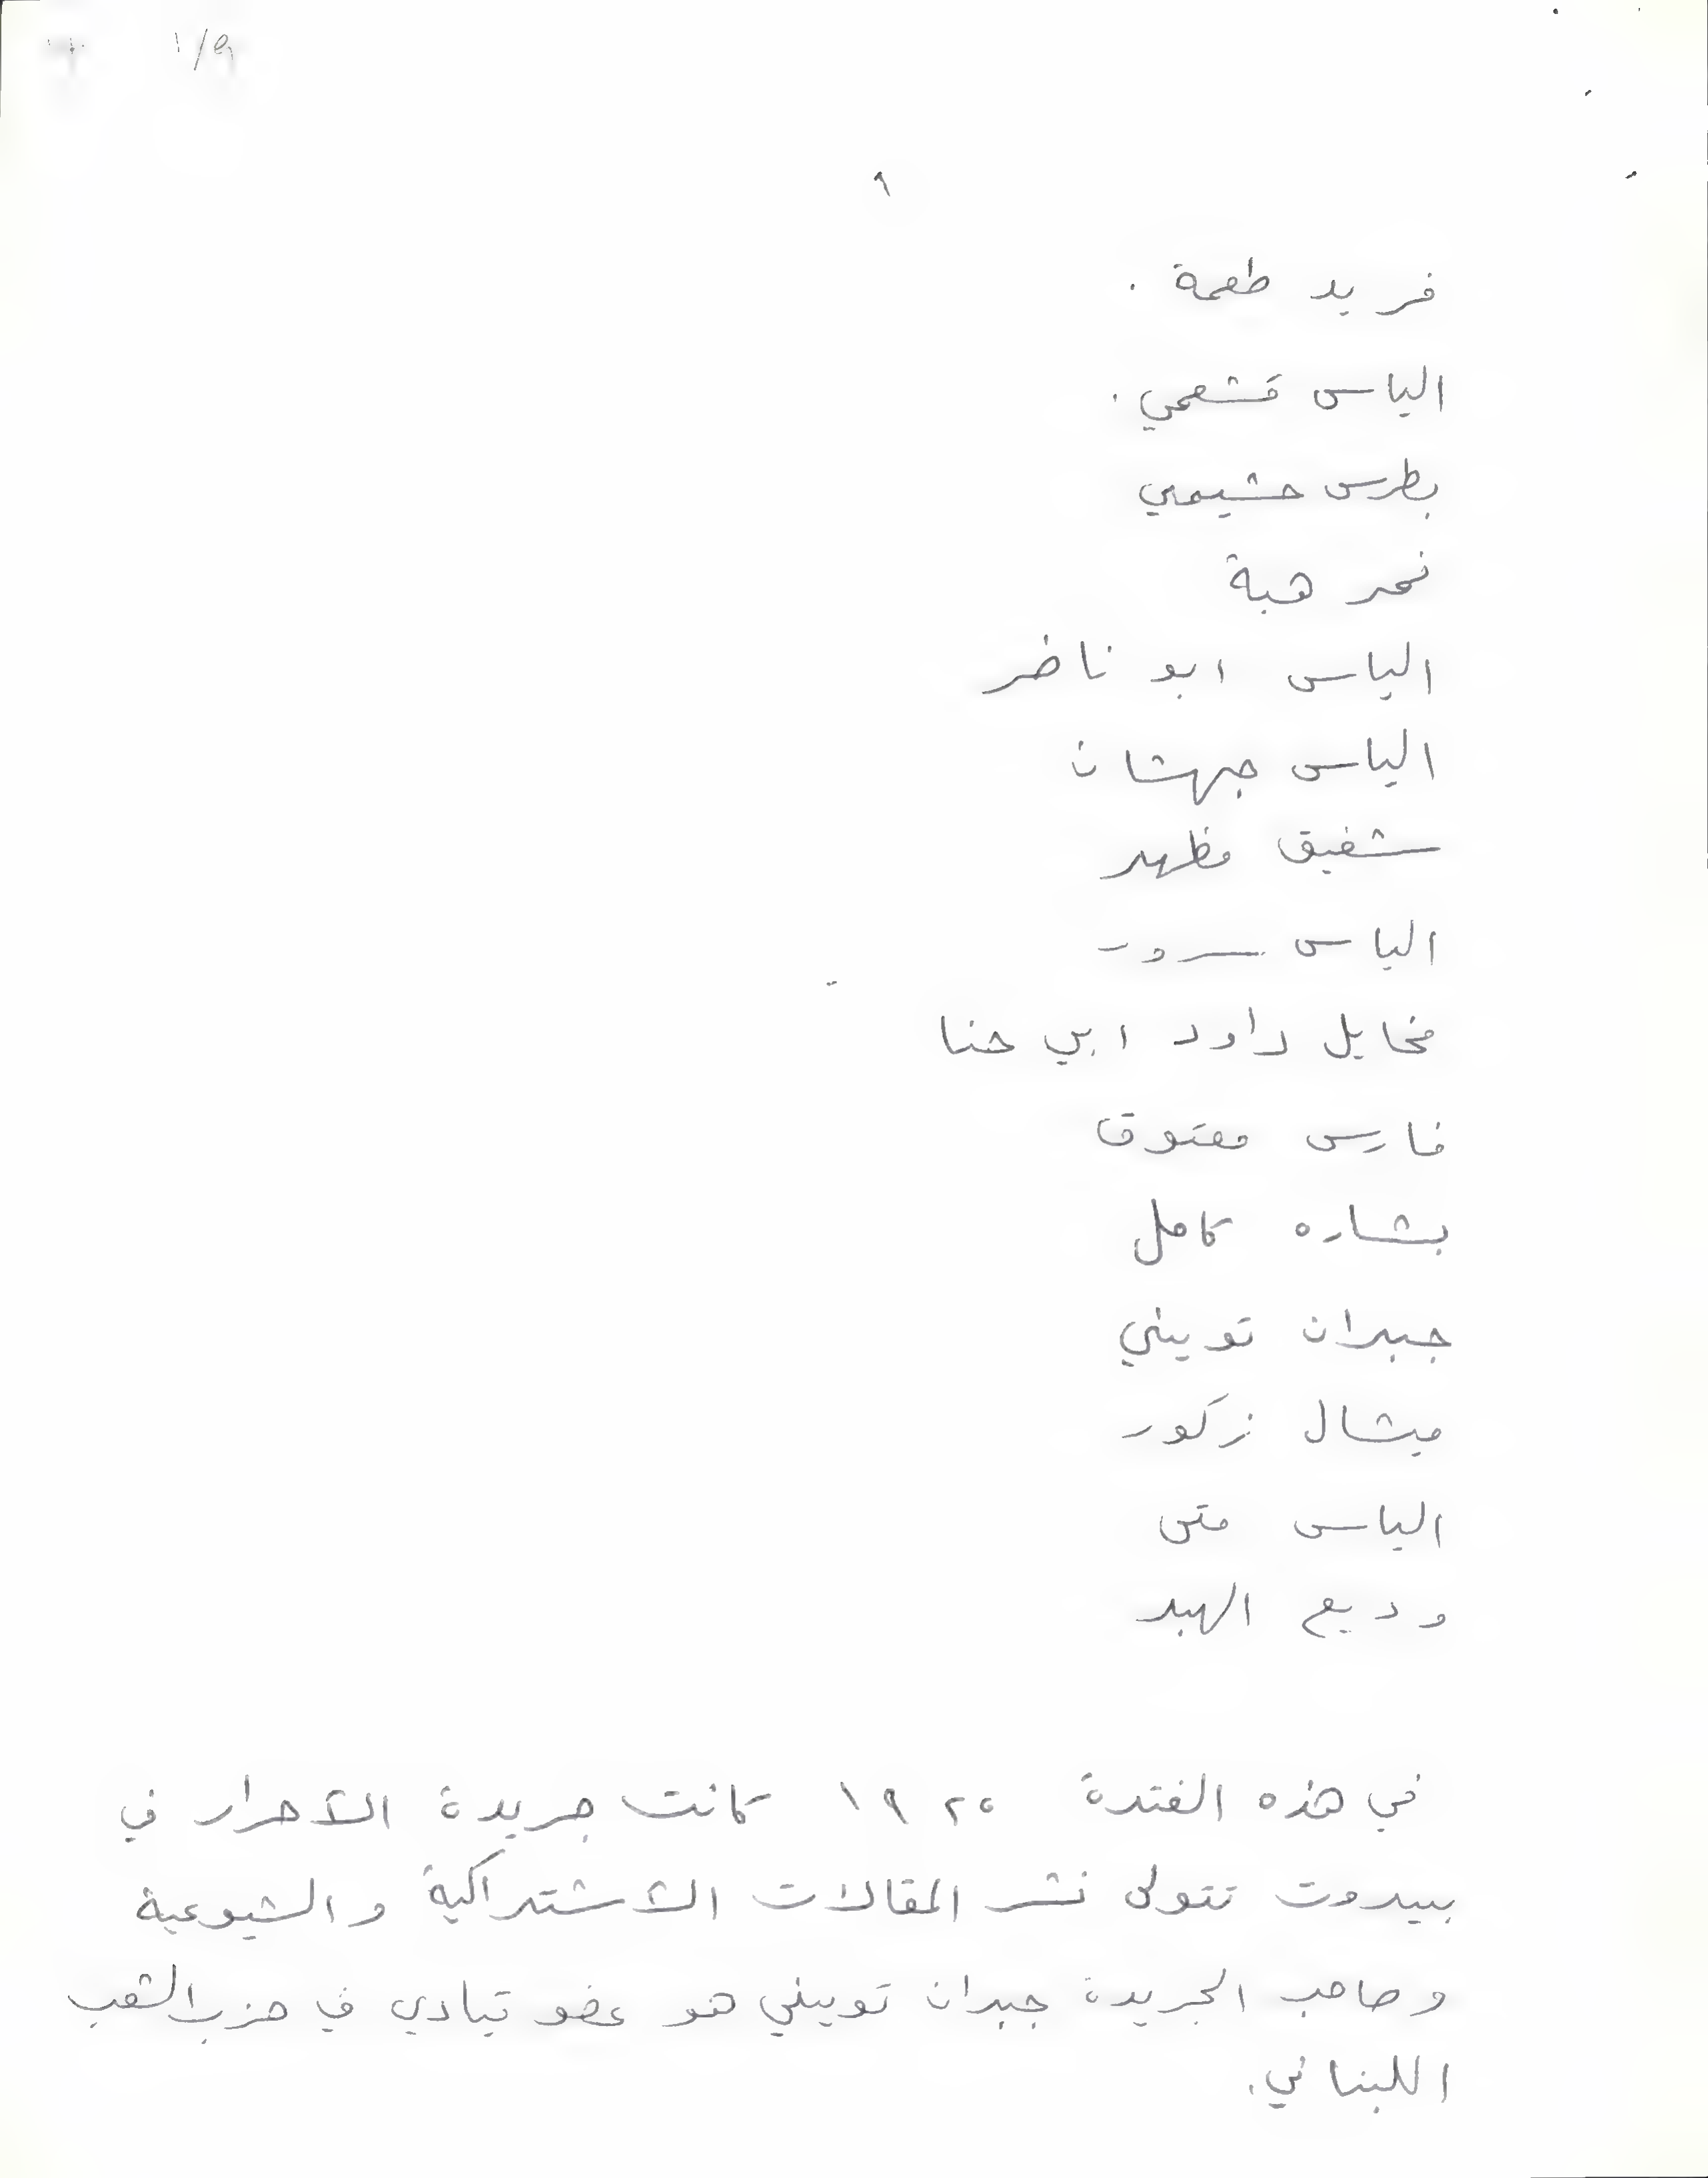 ٩
فريد طعمة .
الياس قشعمي .
بطرس حشيمي
نمر هبة
الياس ابو ناضر
الياس جهشان
شفيق مظهر
الياس سرور
مخايل داود ابي حنا
فارس معتوق
بشاره كامل
جبران تويني
ميشال زكور
الياس متى
وديع الهبر
في هذه الفترة ١٩٢٥ كانت جريدة الأحرار في
بيروت تتولى نشر المقالات الأشتراكية والشيوعية
وصاحب الجريدة جبران تويني هو عضو قيادي في حزب الشعب
اللبناني.